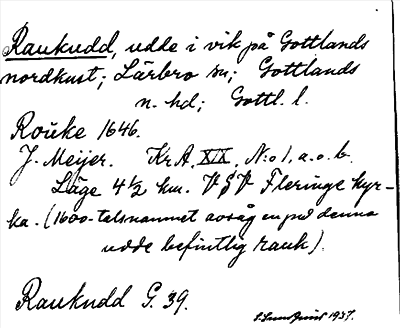 Raukudd, udde i vik på Gottlands
nordkust; Lärbro sn; Gottlands
n. hd; Gottl. l.
Roüke 1646.
J. Meijer. KrA. XIX, N:o 1, a.o.b.
Läge 4 1/2 km. VSV Fleringe kyr-
ka. (1600-talsnamnet avsåg en på denna
udde befintlig rauk).
Raukudd G. 39.
1937.